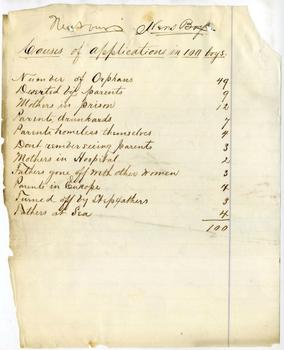 News Boys.
Causes of applications in 100 boys.
Number of Orphans 49
Deserted by parents 9
Mothers in prison 12
Parents drunkards 7
Parents homeless themselves 4
Dont rember seeing parents 3
Mothers in Hospital 2
Fathers gone off with other women 3
Parents in Europe 4
Turned off by Stepfathers 3
Fathers at Sea 4
100